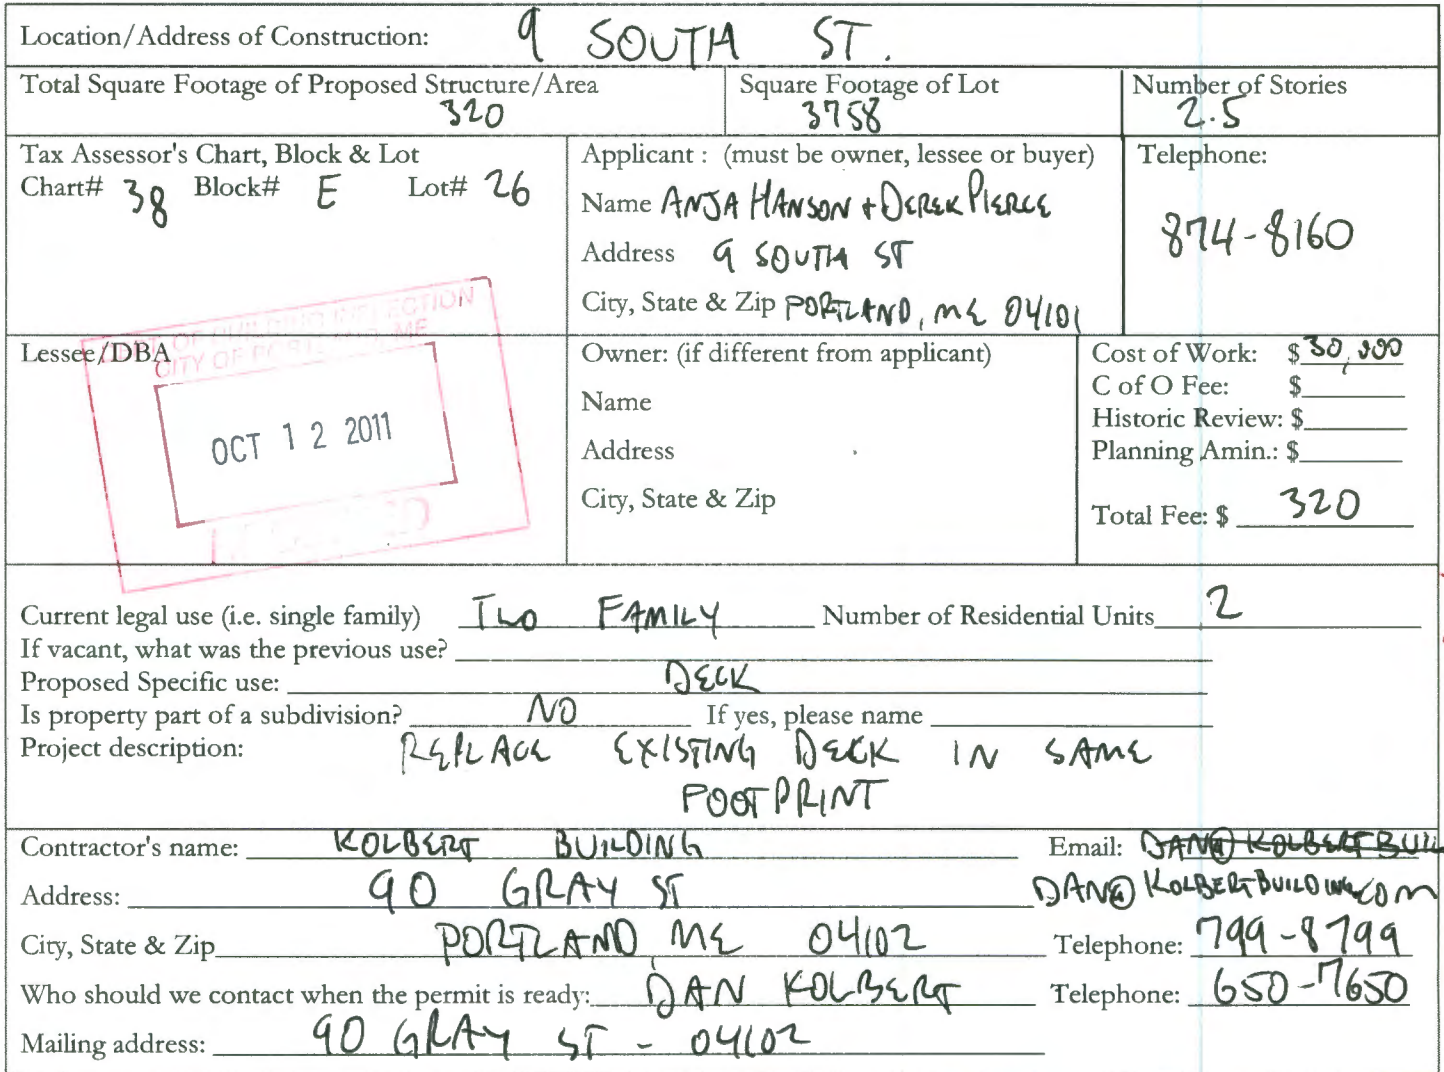 Location/Address of Construction: 9 SOUTH ST.
Total Square Footage of Proposed Structure/Area Square Footage of Lot Number of Stories
320 3758 2.5
Tax Assessor's Chart, Block & Lot Applicant : (must be owner, lessee or buyer) Telephone:
Chart# 38 Block# E Lot# 26
Name ANJA HANSON + DEREK PIERCE
874-8160
Address 9 SOUTH ST
City, State & Zip PORTLAND, ME 04101
DEPT. OF BUILDING INSPECTION
CITY OF PORTLAND, ME
OCT 12 2011
RECEIVED
Lessee/DBA
Owner: (if different from applicant)
Name
Address
City, State & Zip
Cost of Work: $ 30,000
C of O Fee: $
Historic Review: $
Planning Amin.: $
Total Fee: $ 320
Current legal use (i.e. single family) TWO FAMILY Number of Residential Units 2
If vacant, what was the previous use?
Proposed Specific use: DECK
Is property part of a subdivision? NO If yes, please name
Project description: REPLACE EXISTING DECK IN SAME
FOOTPRINT
Contractor's name: KOLBERT BUILDING Email: DAN@KOLBERTBUIL
Address: 90 GRAY ST DAN@KOLBERTBUILDING.COM
City, State & Zip PORTLAND, ME 04102 Telephone: 799-8799
Who should we contact when the permit is ready: DAN KOLBERT Telephone: 650-7650
Mailing address: 90 GRAY ST - 04102